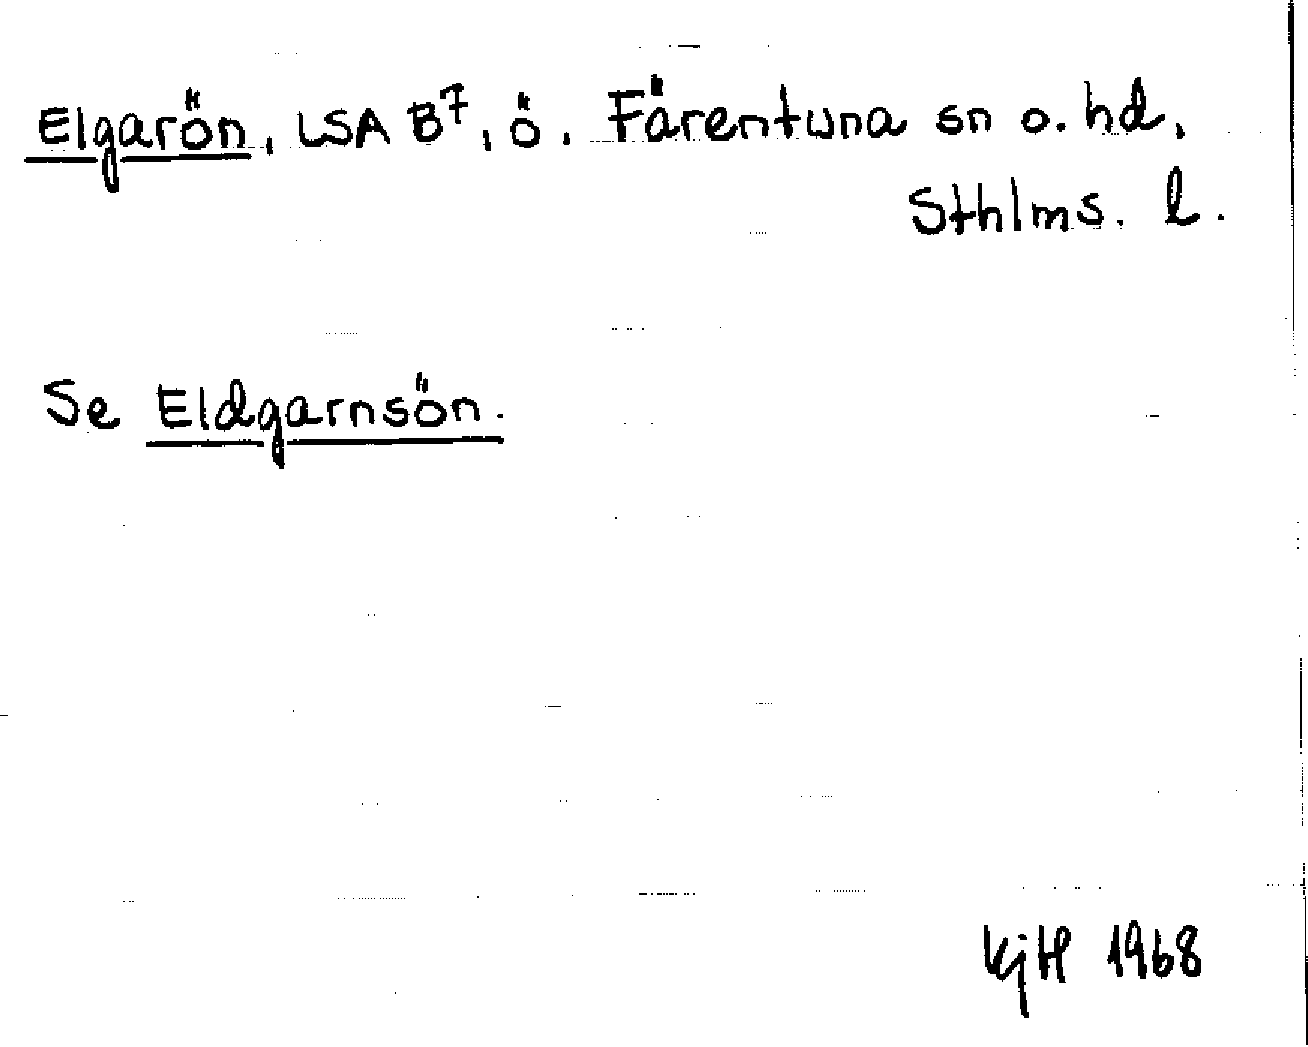 Elgarön, LSA B7, ö. Färentuna sn o. hd,
Sthlms. l.
Se Eldgarnsön.
KjH 1968